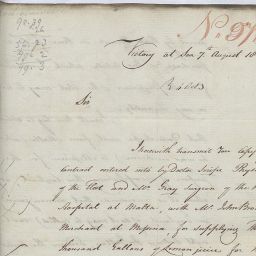 90.29
No. 27
Victory at Sea 7th August 18
R 4 Octr
Sir
I herewith transmit you copy
contract entered into by Doctor Snipe Phys
of the Fleet and Mr. Gray Surgeon of the
Hospital at Malta, with Mr. John Br
Merchant at Messina, for supplying th
thousand Gallons of Lemon juice for